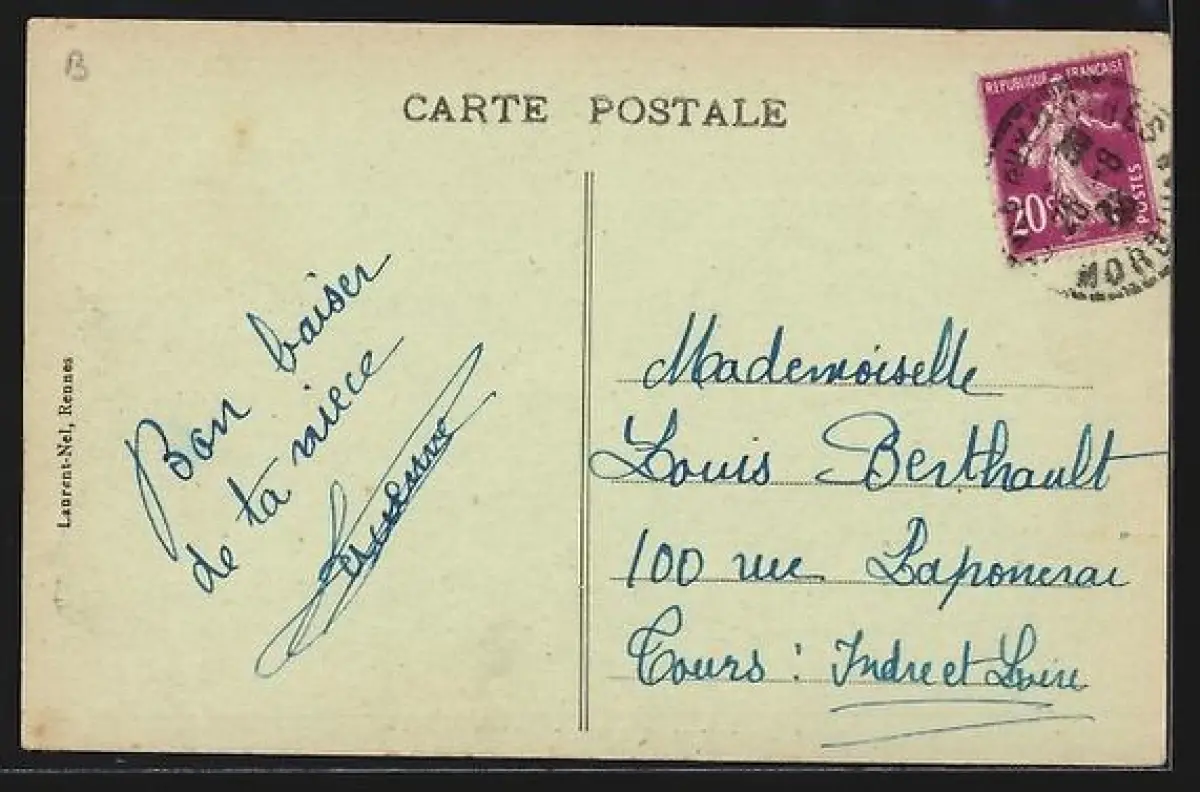 B
CARTE POSTALE
REPUBLIQUE FRANÇAISE
20c
POSTES
28 -8
MORBI
Laurent-Nel, Rennes
Bon baiser
de ta niece
Mademoiselle
Louis Berthault
100 rue Laponerai
Tours : Indre et Loire